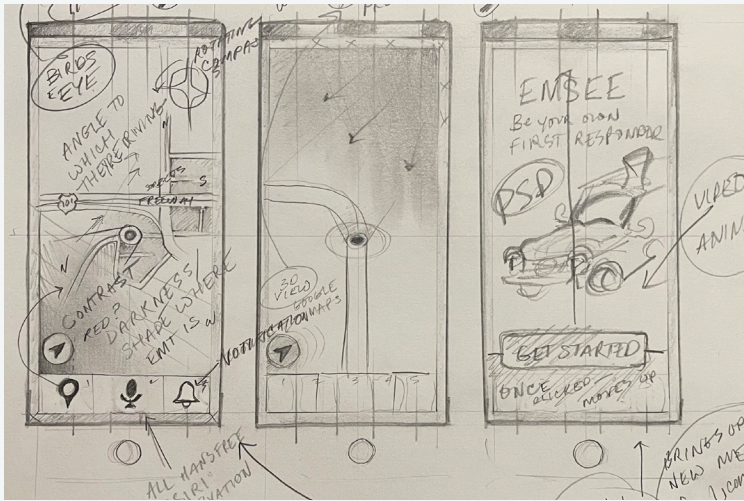 BIRDS
EYE
ROTATING
COMPASS
ANGLE TO
WHICH
THEY'RE DRIVING
N
S
101
FREEWAY
N
CONTRAST
RED?
DARKNESS/
SHADE WHERE
EMT IS
NOTIFICATION
ALL HANDSFREE
"SIRI"
3D
VIEW
GOOGLE
MAPS
1 2 3 4 5
EMSEE
Be YOUR OWN
FIRST RESPONDER
PSD
GET STARTED
ONCE
CLICKED
MOVES UP
VIDEO
BRINGS UP
NEW